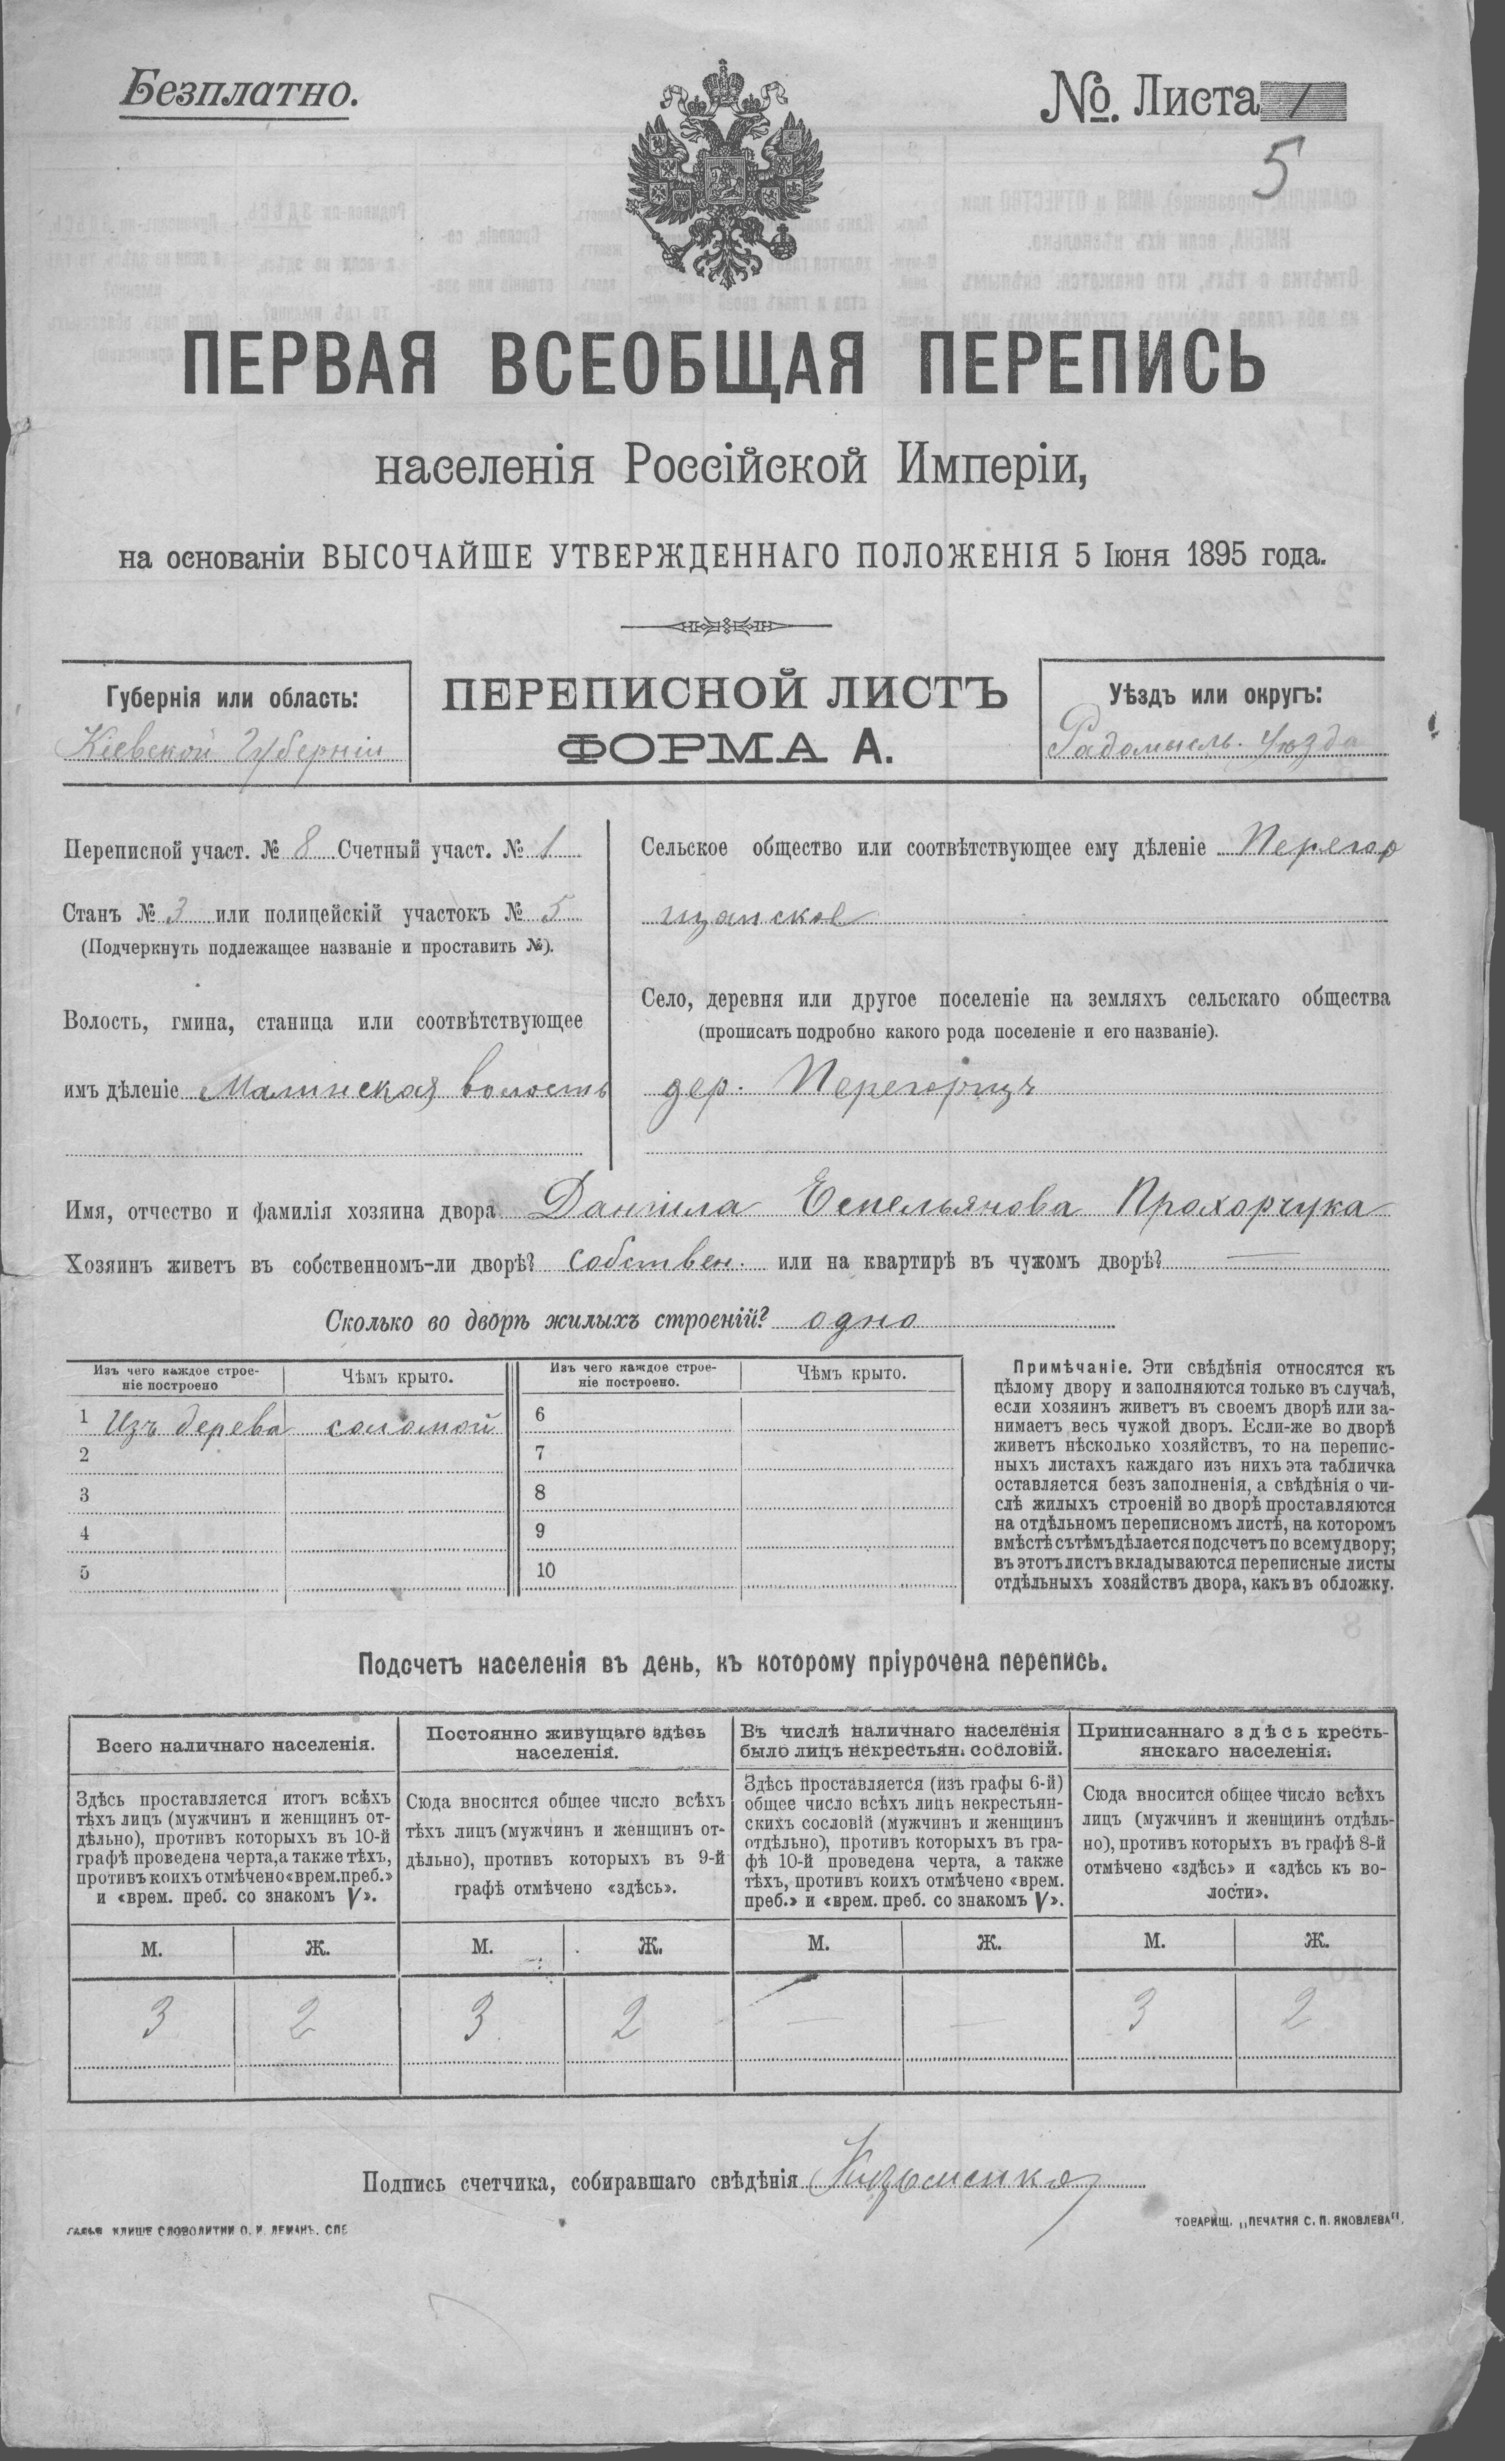 Безплатно.
№ Листа 1
5
ПЕРВАЯ ВСЕОБЩАЯ ПЕРЕПИСЬ
населенія Россійской Имперіи,
на основаніи ВЫСОЧАЙШЕ УТВЕРЖДЕННАГО ПОЛОЖЕНІЯ 5 Іюня 1895 года.
Губернія или область:
Кіевской Губерніи
ПЕРЕПИСНОЙ ЛИСТЪ
ФОРМА А.
Уѣздъ или округъ:
Радомысль. Уѣзда
Переписной участ. № 8 Счетный участ. № 1
Станъ № 3 или полицейскій участокъ № 5
(Подчеркнуть подлежащее названіе и проставить №).
Волость, гмина, станица или соотвѣтствующее
имъ дѣленіе Малинская волость
Сельское общество или соотвѣтствующее ему дѣленіе Перегор
щанское
Село, деревня или другое поселеніе на земляхъ сельскаго общества
(прописать подробно какого рода поселеніе и его названіе).
дер. Перегорищъ
Имя, отчество и фамилія хозяина двора Данiила Емельянова Прохорчука
Хозяинъ живетъ въ собственномъ-ли дворѣ? собствен. или на квартирѣ въ чужомъ дворѣ? —
Сколько во дворѣ жилыхъ строеній? одно
Изъ чего каждое строе-
ніе построено
Чѣмъ крыто.
Изъ чего каждое строе-
ніе построено.
Чѣмъ крыто.
1 Изъ дерева соломой 6
2 7
3 8
4 9
5 10
Примѣчаніе. Эти свѣдѣнія относятся къ
цѣлому двору и заполняются только въ случаѣ,
если хозяинъ живетъ въ своемъ дворѣ или за-
нимаетъ весь чужой дворъ. Если-же во дворѣ
живетъ нѣсколько хозяйствъ, то на перепис-
ныхъ листахъ каждаго изъ нихъ эта табличка
оставляется безъ заполненія, а свѣдѣнія о чи-
слѣ жилыхъ строеній во дворѣ проставляются
на отдѣльномъ переписномъ листѣ, на которомъ
вмѣстѣ съ тѣмъ дѣлается подсчетъ по всему двору;
въ этотъ листъ вкладываются переписные листы
отдѣльныхъ хозяйствъ двора, какъ въ обложку.
Подсчетъ населенія въ день, къ которому пріурочена перепись.
Всего наличнаго населенія.
Здѣсь проставляется итогъ всѣхъ
тѣхъ лицъ (мужчинъ и женщинъ от-
дѣльно), противъ которыхъ въ 10-й
графѣ проведена черта, а также тѣхъ,
противъ коихъ отмѣчено «врем. преб.»
и «врем. преб. со знакомъ V».
Постоянно живущаго здѣсь
населенія.
Сюда вносится общее число всѣхъ
тѣхъ лицъ (мужчинъ и женщинъ от-
дѣльно), противъ которыхъ въ 9-й
графѣ отмѣчено «здѣсь».
Въ числѣ наличнаго населенія
было лицъ некрестьян. сословій.
Здѣсь проставляется (изъ графы 6-й)
общее число всѣхъ лицъ некрестьян-
скихъ сословій (мужчинъ и женщинъ
отдѣльно), противъ которыхъ въ гра-
фѣ 10-й проведена черта, а также
тѣхъ, противъ коихъ отмѣчено «врем.
преб.» и «врем. преб. со знакомъ V».
Приписаннаго здѣсь кресть-
янскаго населенія.
Сюда вносится общее число всѣхъ
лицъ (мужчинъ и женщинъ отдѣль-
но), противъ которыхъ въ графѣ 8-й
отмѣчено «здѣсь» и «здѣсь къ во-
лости».
М. Ж. М. Ж. М. Ж. М. Ж.
3 2 3 2 — — 3 2
Подпись счетчика, собиравшаго свѣдѣнія
КЛИШЕ СЛОВОЛИТНИ О. И. ЛЕМАНЪ. СПБ
ТОВАРИЩ. „ПЕЧАТНЯ С. П. ЯКОВЛЕВА".